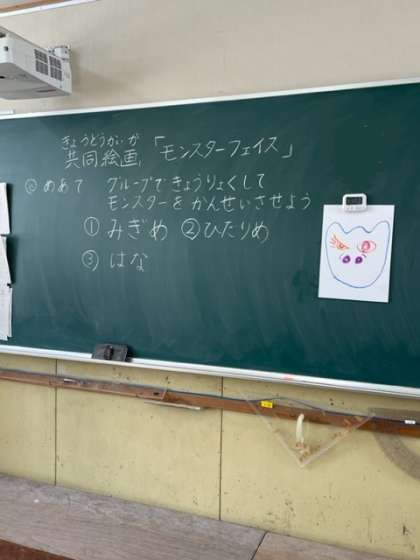 きょうどうかいが
共同絵画「モンスターフェイス」
めあて グループできょうりょくして
モンスターをかんせいさせよう
①みぎめ ②ひだりめ
③はな